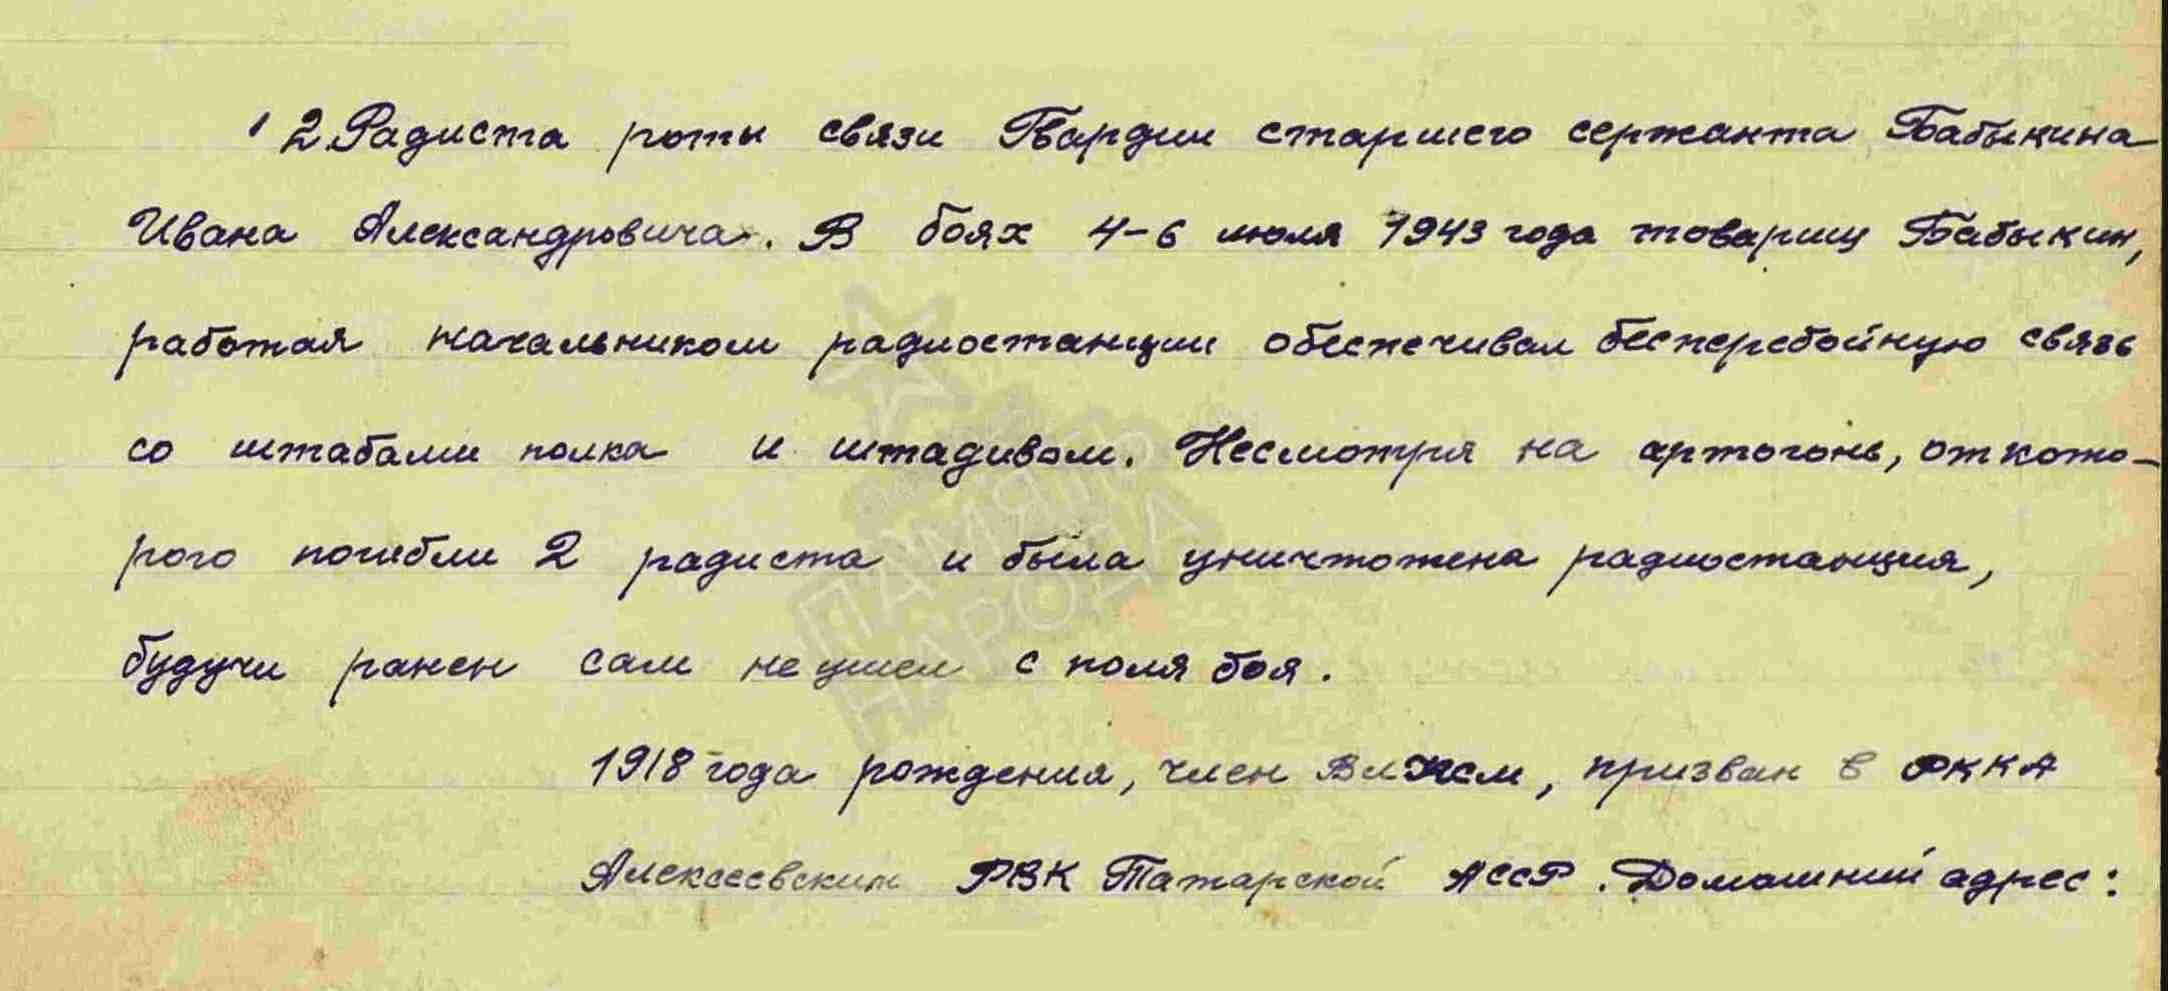 12. Радиста роты связи Гвардии старшего сержанта Бабыкина
Ивана Александровича. В боях 4-6 июля 1943 года товарищ Бабыкин,
работая начальником радиостанции обеспечивал бесперебойную связь
со штабами полка и штадивом. Несмотря на артогонь, от кото-
рого погибли 2 радиста и была уничтожена радиостанция,
будучи ранен сам не ушел с поля боя.
1918 года рождения, член ВЛКСМ, призван в РККА
Алексеевским РВК Татарской АССР. Домашний адрес:
ПАМЯТЬ
НАРОДА